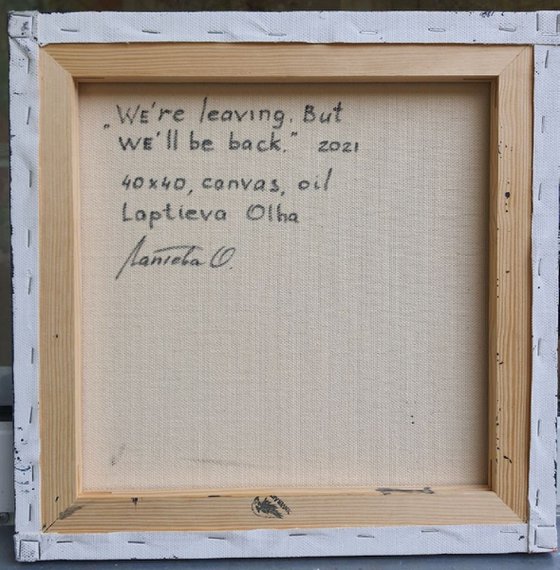 „WE're leaving. But
WE'll be back." 2021
40x40, canvas, oil
Laptieva Olha
Лаптєва О.